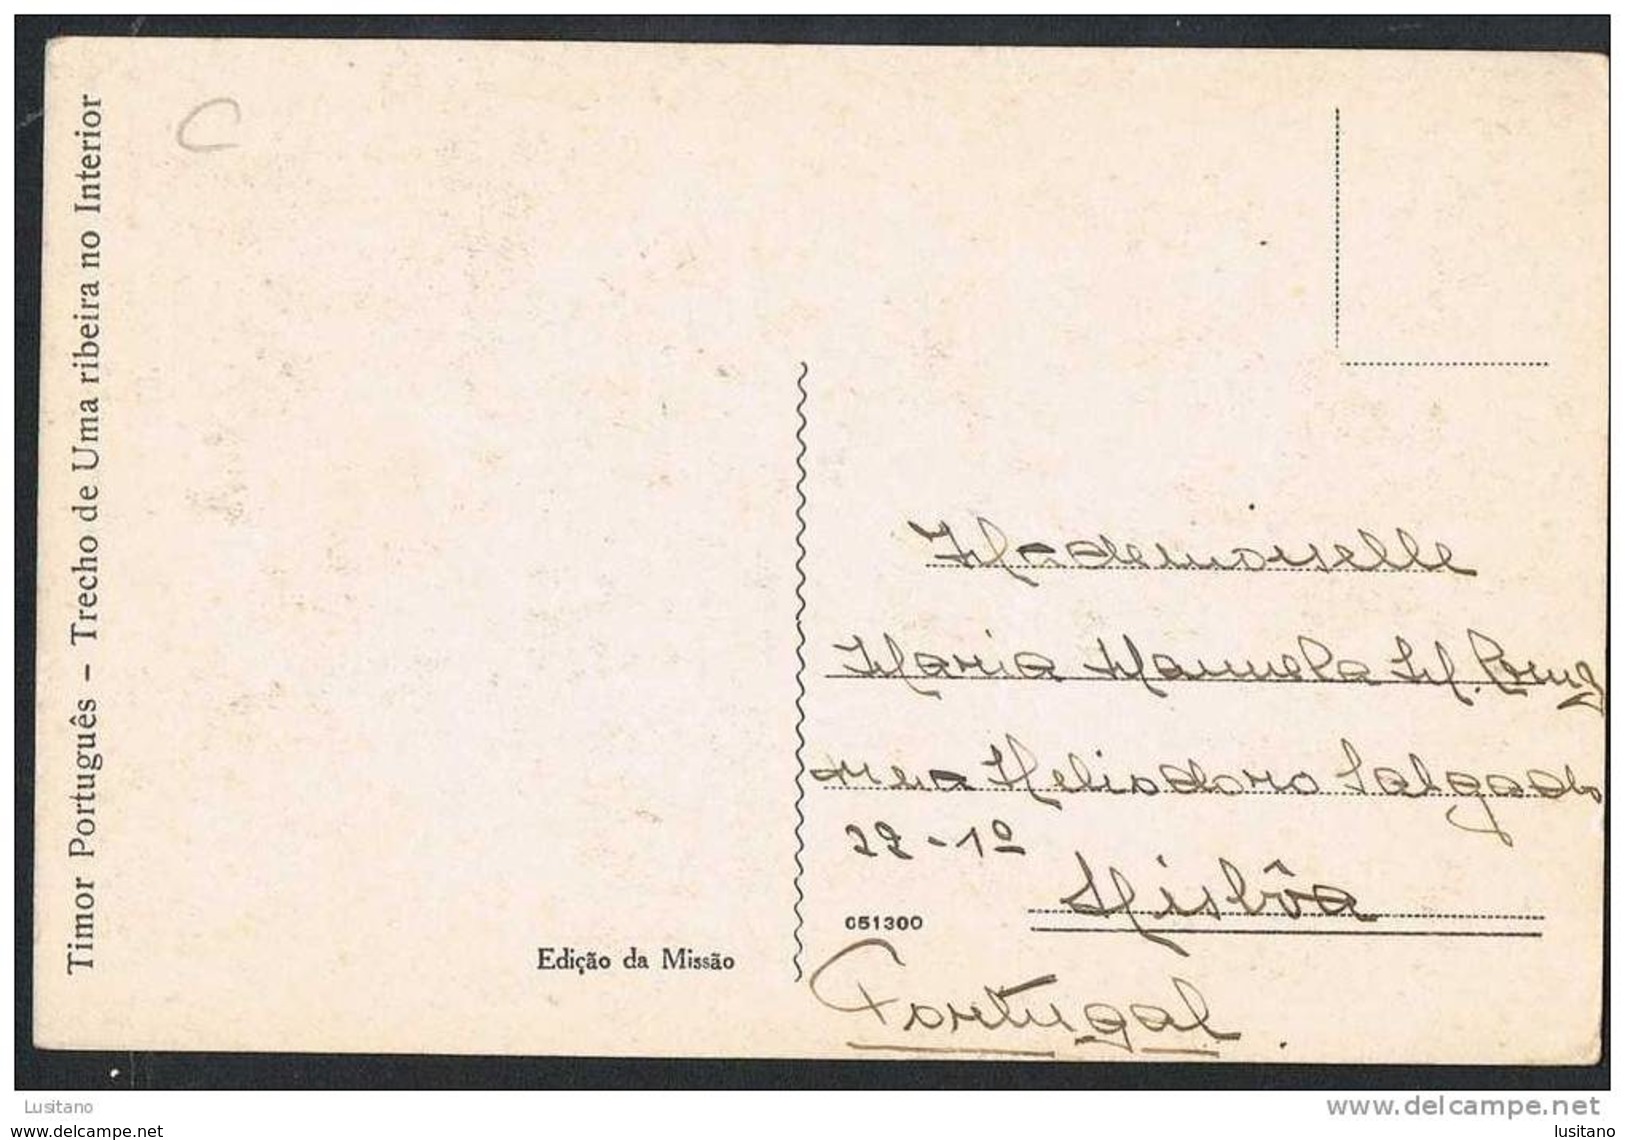 Timor Português – Trecho de Uma ribeira no Interior
C
Mademoiselle
Maria Manuela M. Cruz
rua Heliodoro Salgado
22-1º
Lisbôa
051300
Edição da Missão
Portugal.
Lusitano
www.delcampe.net
www.delcampe.net
lusitano